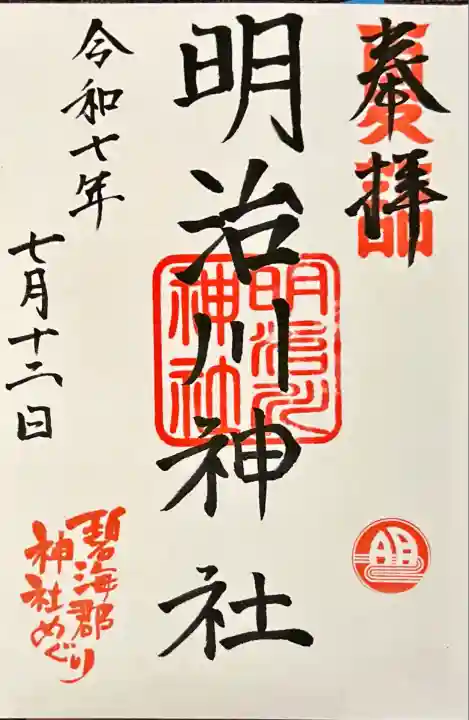 奉拝
夏詣
明治川神社
明治川
神社
令和七年
七月十二日
碧海郡
神社めぐり
明